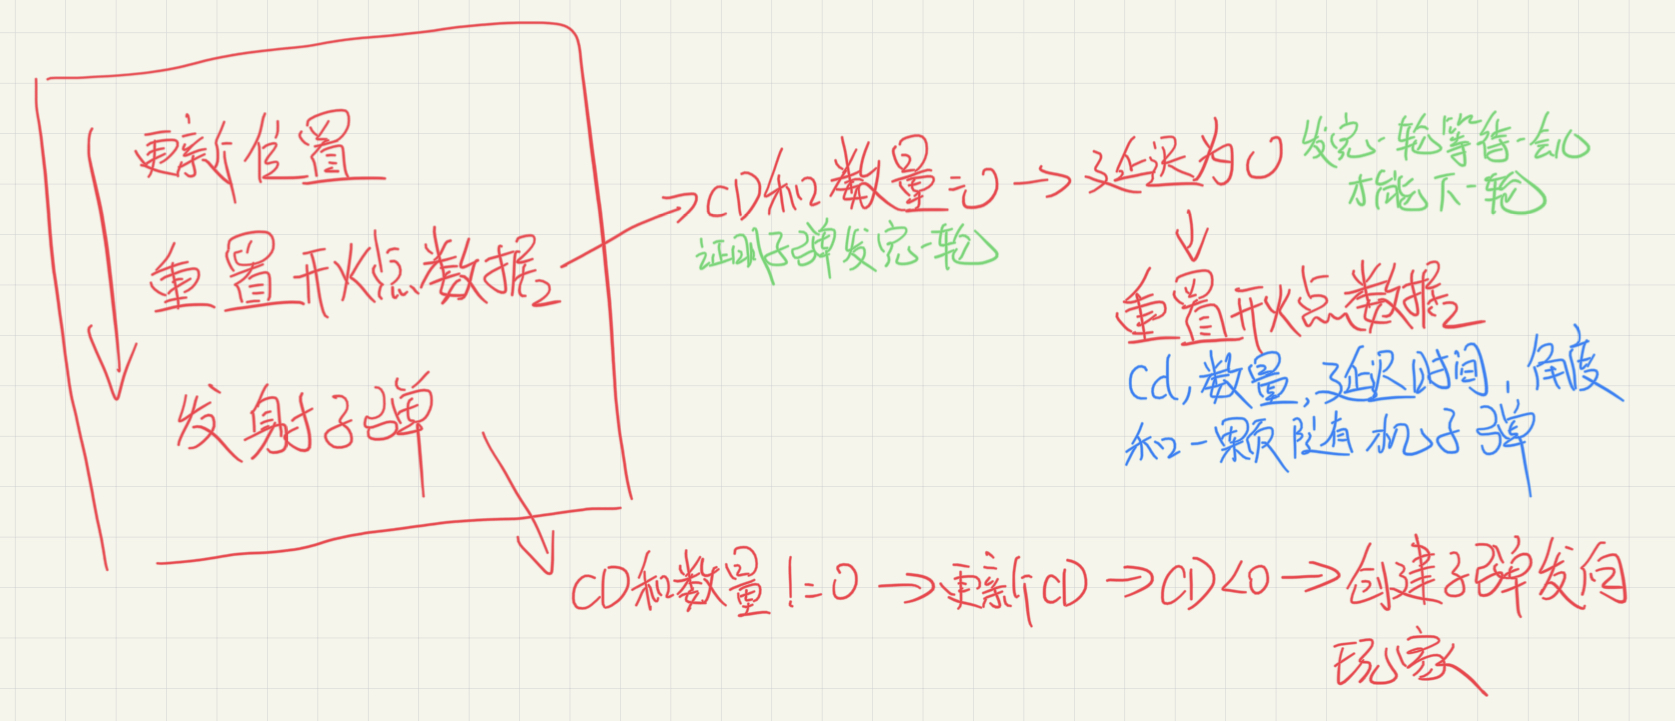 更新位置
重置开火点数据
发射子弹
CD和数量=0
证明子弹发完一轮
延迟为0
发完一轮等待一会
才能下一轮
重置开火点数据
Cd,数量,延迟时间,角度
和一颗随机子弹
CD和数量!=0
更新CD
CD<0
创建子弹发向
玩家